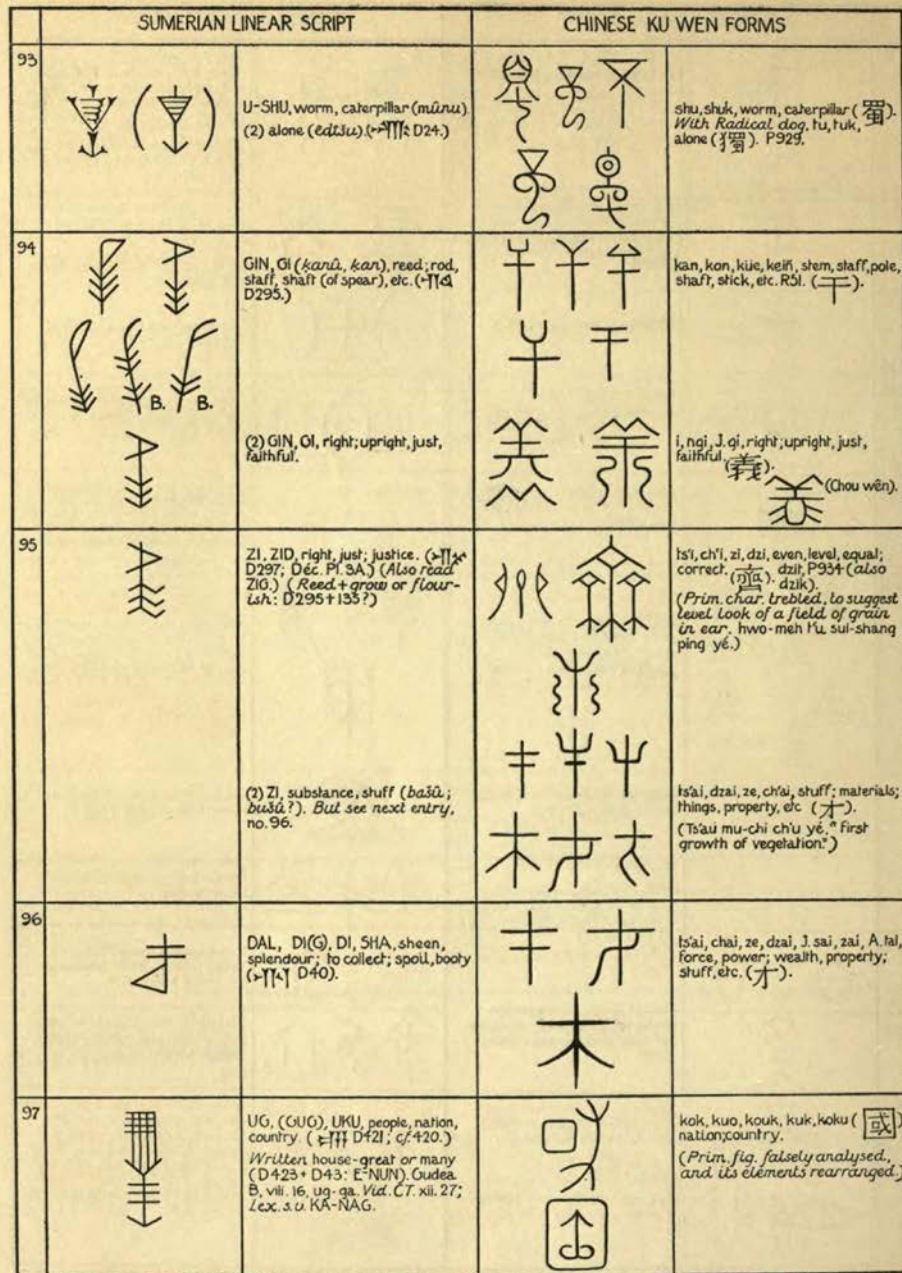 SUMERIAN LINEAR SCRIPT
CHINESE KU WEN FORMS
93
U-SHU, worm, caterpillar (mûnu).
(2) alone (êdišu). ( D24.)
shu, shuk, worm, caterpillar (蜀).
With Radical dog, tu, tuk,
alone (獨). P929.
94
GIN, GI (ḳanû, ḳan), reed; rod,
staff, shaft (of spear), etc. (
D295.)
B. B.
kan, kon, küe, keiñ, stem, staff, pole,
shaft, stick, etc. R51. (干).
(2) GIN, GI, right; upright, just,
faithful.
i, ngi, J. gi, right; upright, just,
faithful. (義).
(Chou wên).
95
ZI, ZID, right, just; justice. (
D297; Déc. Pl. 3A.) (Also read
ZIG.) (Reed + grow or flour-
ish: D295 + 133?)
ts'i, ch'i, zi, dzi, even, level, equal;
correct. (齊). dzit, P934 (also
dzik).
(Prim. char. trebled, to suggest
level look of a field of grain
in ear. hwo-meh t'u sui-shang
ping yé.)
(2) ZI, substance, stuff (bašû;
bušû?). But see next entry,
no. 96.
ts'ai, dzai, ze, ch'ai, stuff; materials;
things, property, etc (才).
(Ts'au mu-chi ch'u yé, "first
growth of vegetation.")
96
DAL, DI(G), DI, SHA, sheen,
splendour; to collect; spoil, booty
( D40).
ts'ai, chai, ze, dzai, J. sai, zai, A. tai,
force, power; wealth, property;
stuff, etc. (才).
97
UG, (GUG), UKU, people, nation,
country. ( D421; cf. 420.)
Written house-great or many
(D423 + D43: E-NUN). Gudea
B, viii. 16, ug-ga. Vid. CT. xii. 27;
Lex. s.v. KA-NAG.
kok, kuo, kouk, kuk, koku (國)
nation; country.
(Prim. fig. falsely analysed,
and its elements rearranged.)